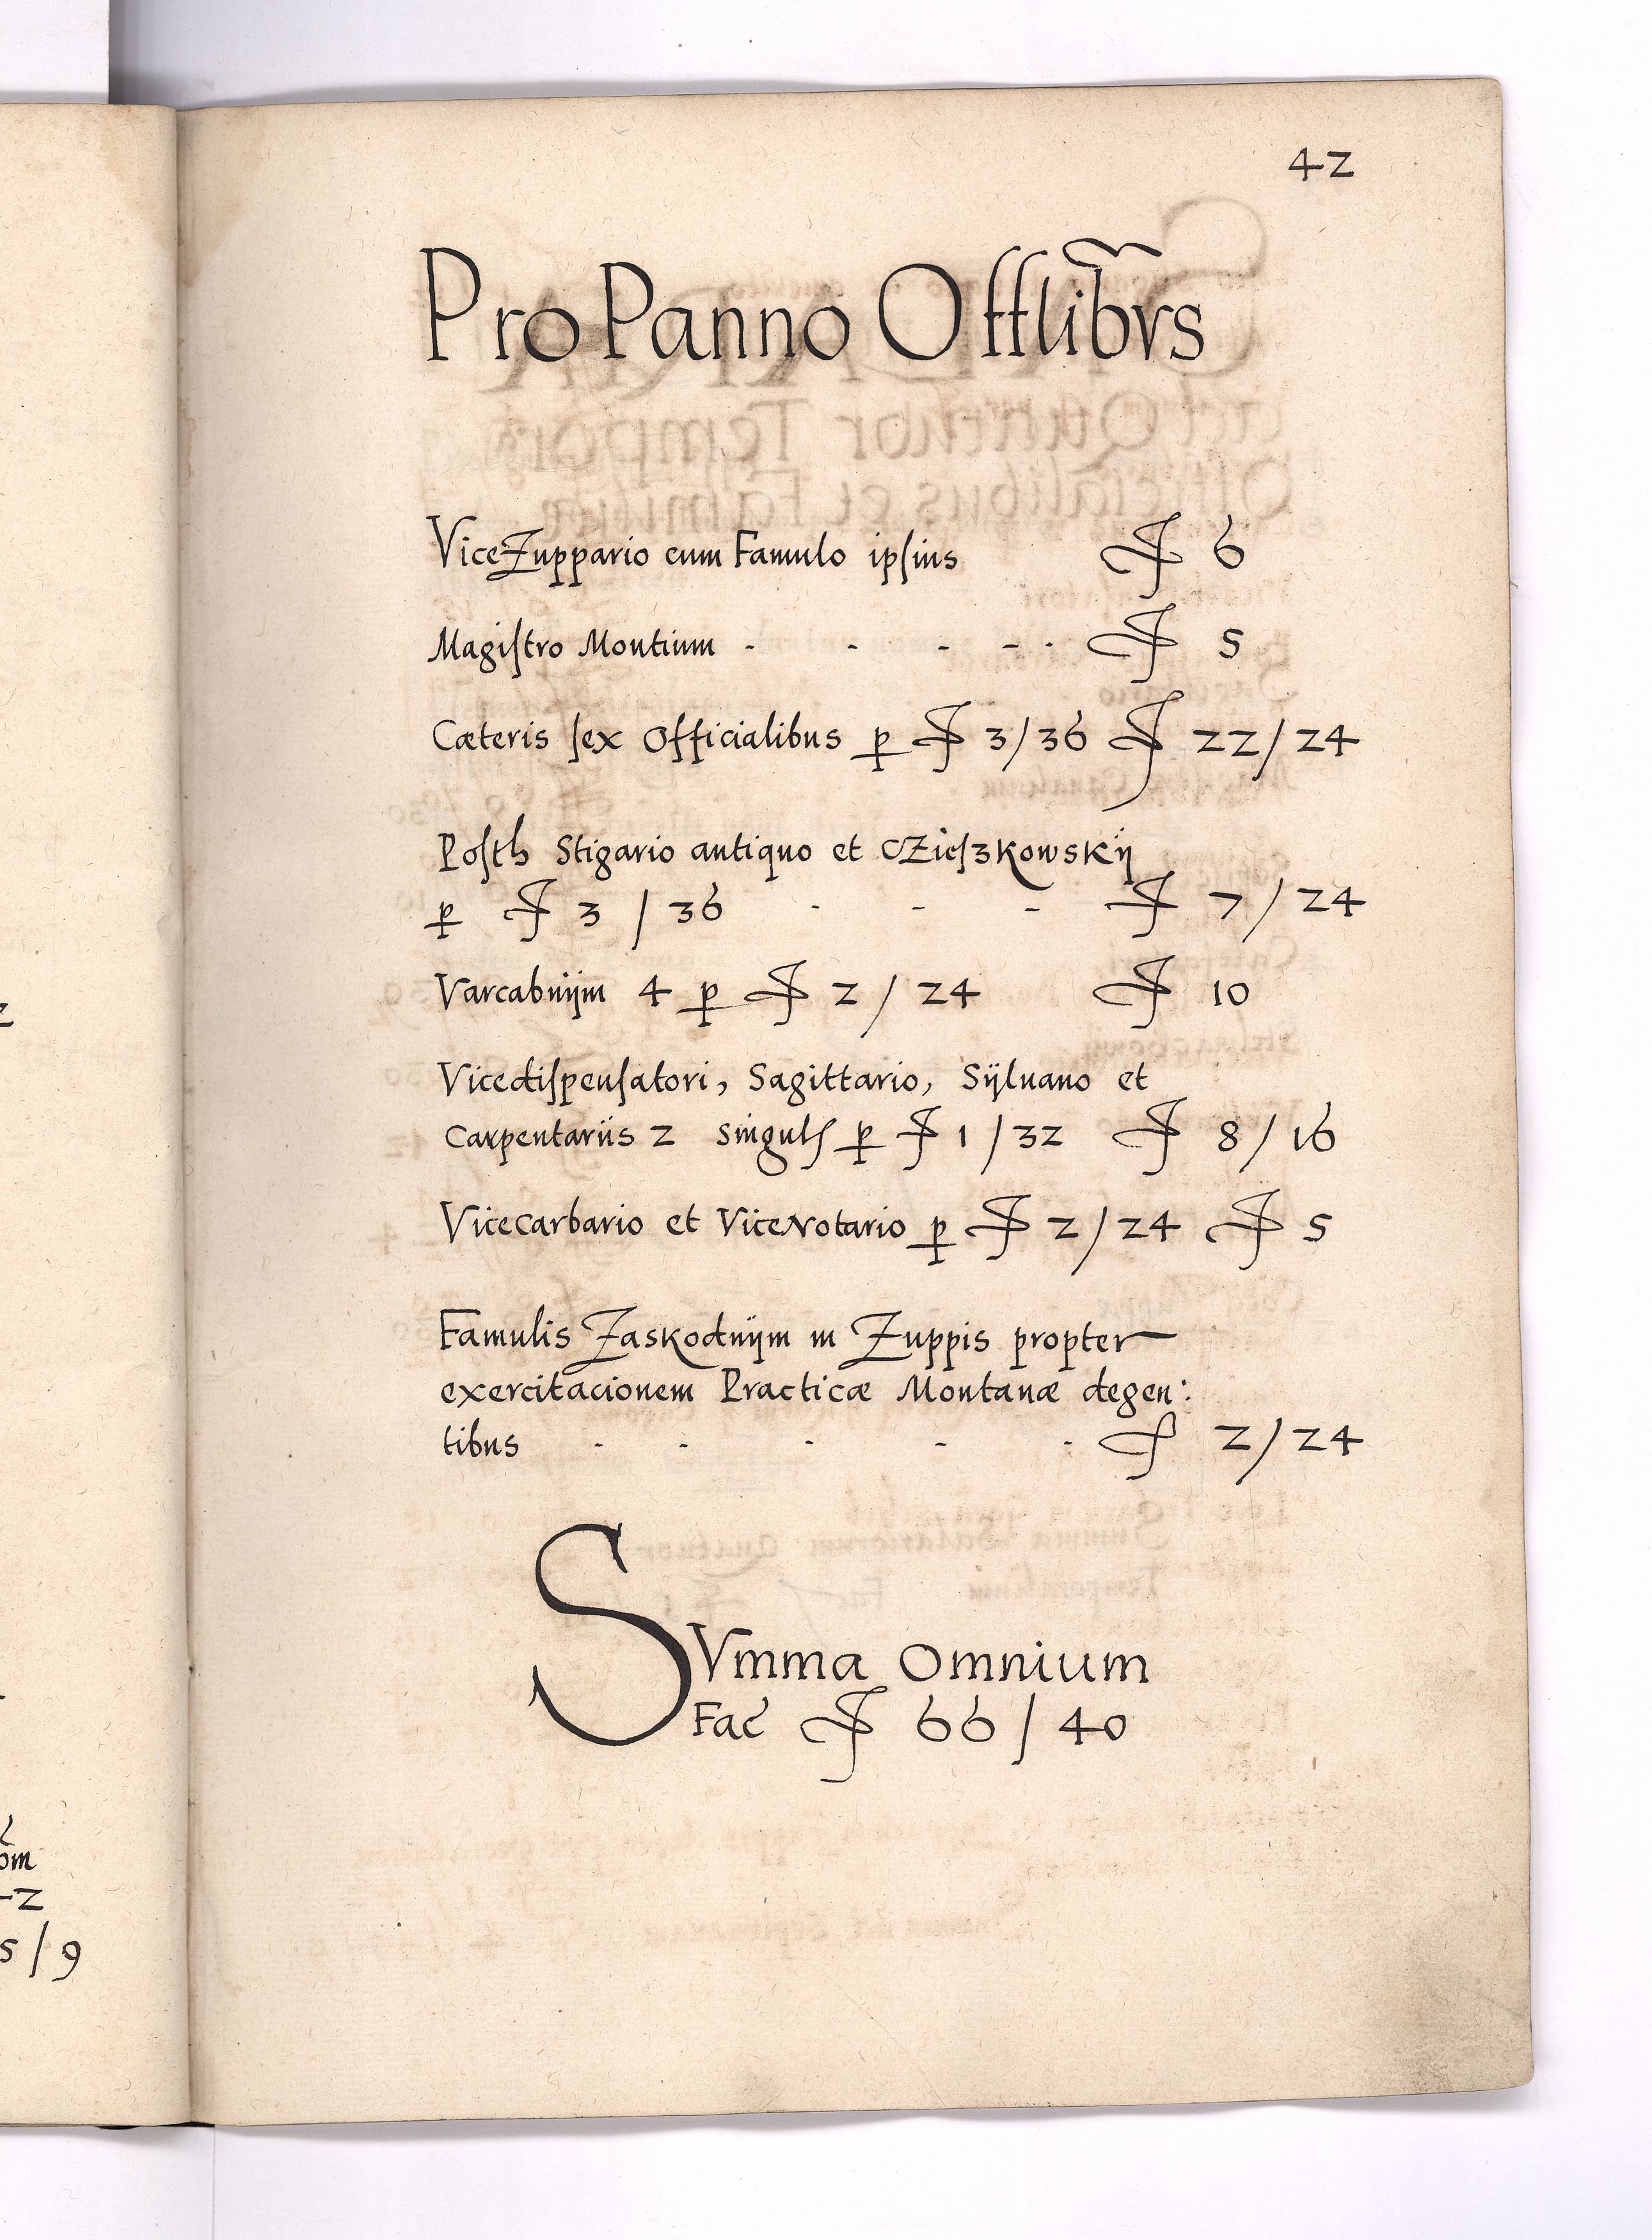 42
Pro Panno Offlibvs
ViceZuppario cum Famulo ipſius ƒ 6
Magiſtro Montium - - - - . ƒ 5
Cæteris ſex Officialibus p ƒ 3/36 ƒ 22/24
Poſth Stigario antiquo et CZieſzkowskij
p ƒ 3 / 36 - - - ƒ 7/24
Varcabnijm 4 p ƒ 2 / 24 ƒ 10
Vicediſpenſatori, Sagittario, Sÿluano et
Carpentariis 2 ſingulſ p ƒ 1/32 ƒ 8/16
Vicecarbario et Vicenotario p ƒ 2/24 ƒ 5
Famulis Zaskodnijm in Zuppis propter
exercitacionem Practicæ Montanæ degen:
tibus - - - - - ƒ 2/24
SVmma omnium
Fac ƒ 66 / 40
om
5/9